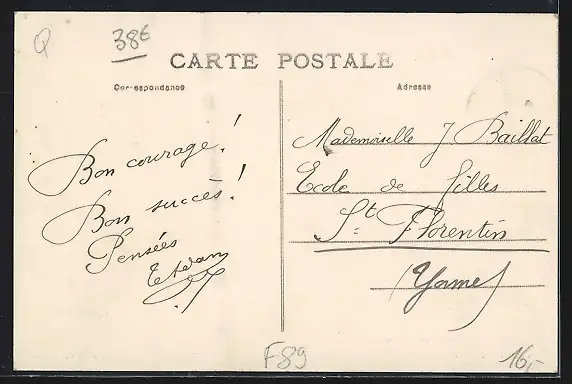 Q
38€
CARTE POSTALE
Correspondance
Adresse
Bon courage!
Bon succès!
Pensées
Mademoiselle J Baillat
Ecole de filles
St Florentin
(Yonne)
F89
16,-